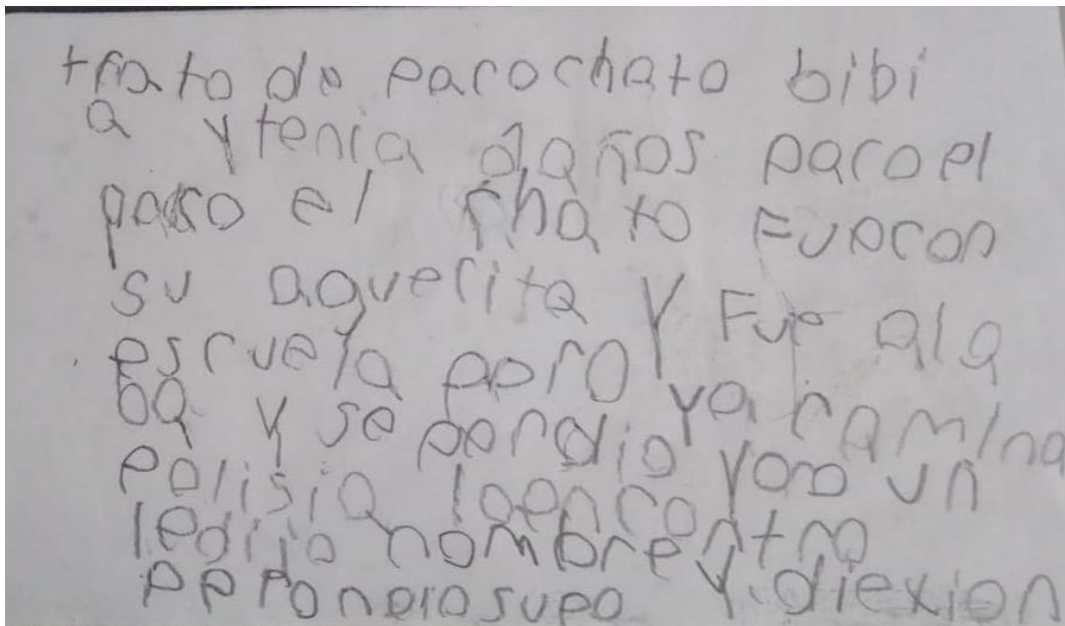 trato de parochato bibi
a y tenia daños paro el
paso el chato Fueron
su aguerita y Fue ala
escuela pero ya camina
ba y se perdio y un
polisia loencontro
ledijo nombre y diexion
pero nolo supo